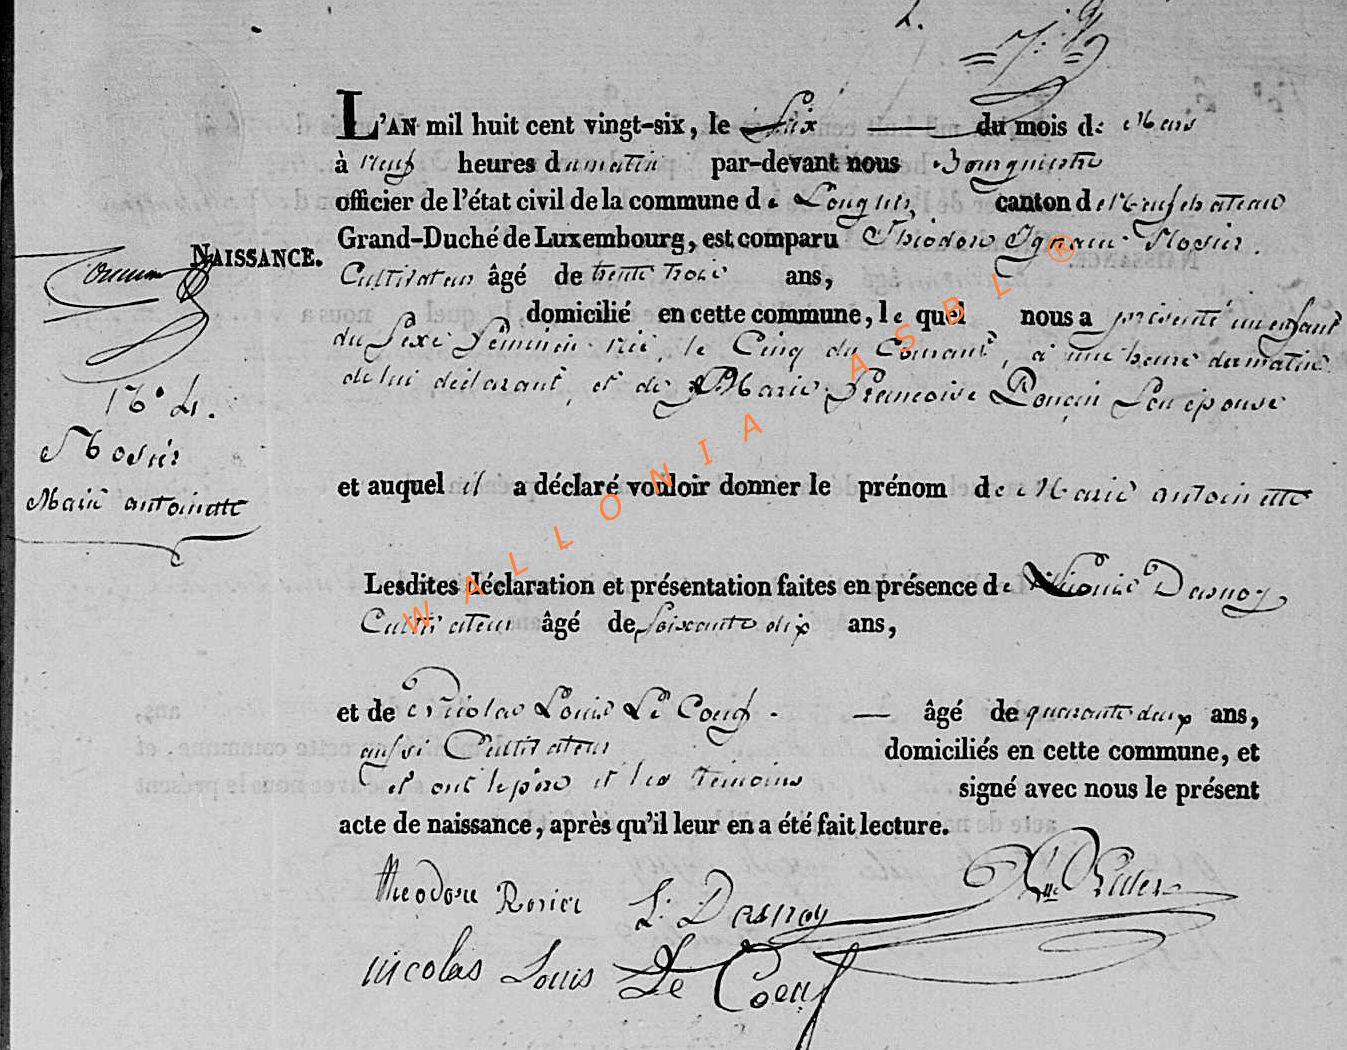 2.
L'AN mil huit cent vingt-six, le Six du mois de Mars
à neuf heures du matin par-devant nous Bourgmestre
officier de l'état civil de la commune de Longlier, canton de Neufchateau
Grand-Duché de Luxembourg, est comparu Théodore Ignace Rosier.
NAISSANCE.
Cultivateur âgé de trente trois ans,
domicilié en cette commune, le quel nous a présenté un enfant
du Sexe Féminin né, le Cinq du Courant, à une heure du matin
de lui déclarant, et de Marie Francoise Poncin Son épouse
N° 4.
Rosier
Marie antoinette
et auquel il a déclaré vouloir donner le prénom de Marie antoinette
Lesdites déclaration et présentation faites en présence de Dasnoy
Cultivateur âgé de Soixante dix ans,
et de Nicolas Louis Le Coeuf âgé de quarante deux ans,
aussi Cultivateur domiciliés en cette commune, et
et ont le père et les témoins signé avec nous le présent
acte de naissance, après qu'il leur en a été fait lecture.
theodore Rosier L. Dasnoy
nicolas Louis Le Coeuf
WALLONIA ASBL ®